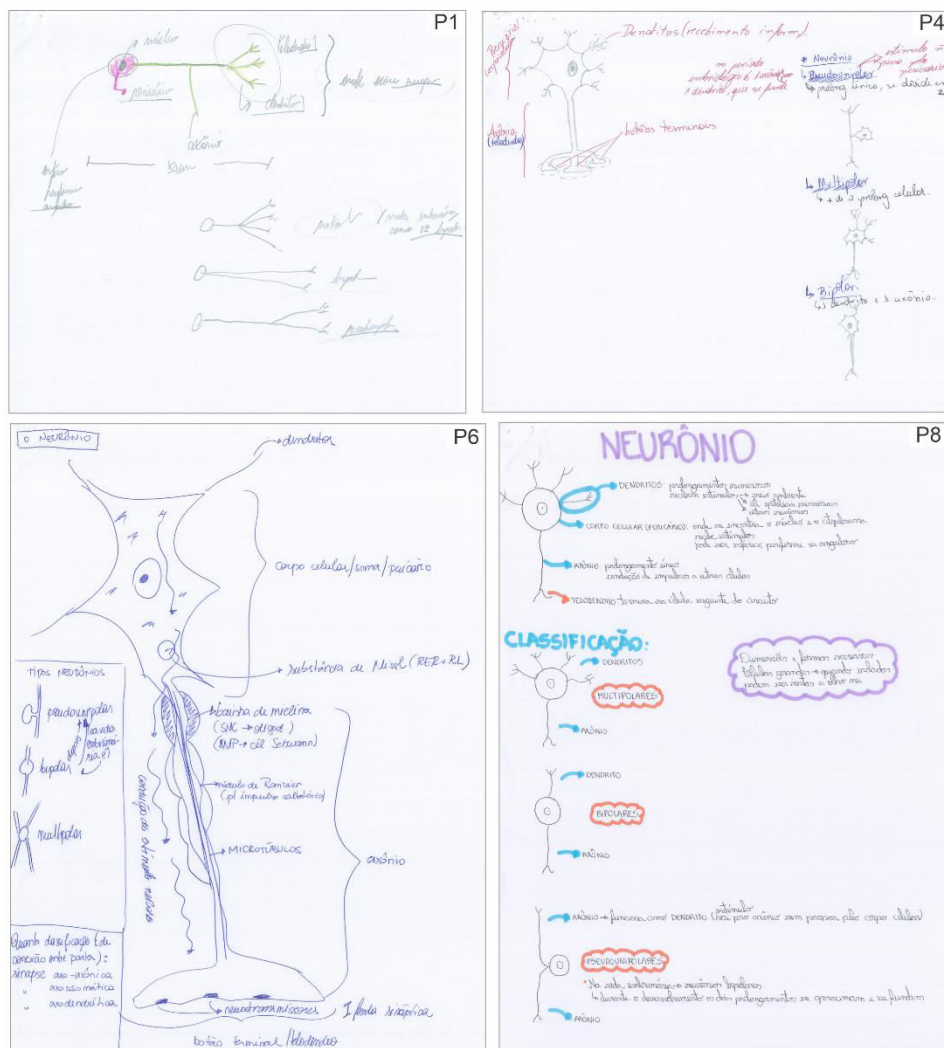 P1
núcleo
pericário
dendrito
axônio
P4
Dendritos (recebimento inform.)
* Neurônio
↳ Pseudounipolar
↳ prolong único, se divide em 2
estímulo ñ passa pelo pericário
no período embriológico é 1 axônio 1 dendrito, que se funde
Axônio
(telodendro)
botões terminais
↳ Multipolar
↳ + de 2 prolong celular.
↳ Bipolar
↳ 1 dendrito e 1 axônio.
P6
O NEURÔNIO
dendritos
corpo celular/soma/pericário
substância de Nissl (RER + RL)
TIPOS NEURÔNIOS
pseudounipolar
bipolar
multipolar
bainha de mielina
(SNC → oligod)
(SNP → cél Schwann)
nódulo de Ranvier
(p/ impulso saltatório)
MICROTÚBULOS
axônio
condução do estímulo nervoso
Quanto classificação (de conexão entre parta):
sinapse axo-axônica
" axossomática
" axodendrítica
neurotransmissores
fenda sináptica
botão terminal/telodendro
P8
NEURÔNIO
DENDRITOS: prolongamentos numerosos
recebem estímulos
meio ambiente
cél epiteliais sensoriais
outros neurônios
CORPO CELULAR (PERICÁRIO): onde se encontra o núcleo e o citoplasma
recebe estímulos
pode ser esférico, piriforme ou anguloso
AXÔNIO: prolongamento único
condução de impulsos a outras células
TELODENDRO: termina na célula seguinte do circuito
CLASSIFICAÇÃO:
DENDRITOS
MULTIPOLARES
AXÔNIO
Dimensões e formas variáveis
Células grandes → quando isoladas
podem ser vistas a olho nu
DENDRITO
BIPOLARES
AXÔNIO
AXÔNIO → funciona como DENDRITO (estímulo vai pro axônio sem passar pelo corpo celular)
PSEUDOUNIPOLARES
* Na vida embrionária → neurônios bipolares
↳ durante o desenvolvimento os dois prolongamentos se aproximam e se fundem
AXÔNIO